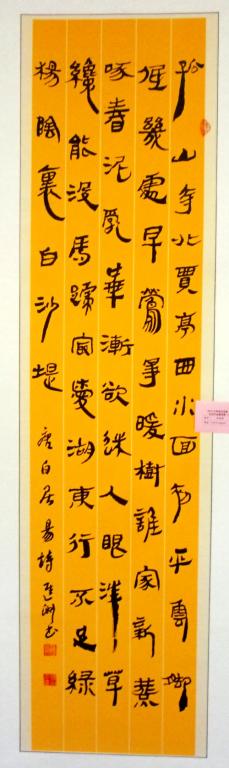 孤山寺北賈亭西水面初平雲腳
低幾處早鶯爭暖樹誰家新燕
啄春泥亂華漸欲迷人眼淺草
纔能沒馬蹄冣愛湖東行不足綠
楊陰裏白沙堤
唐白居易詩 書